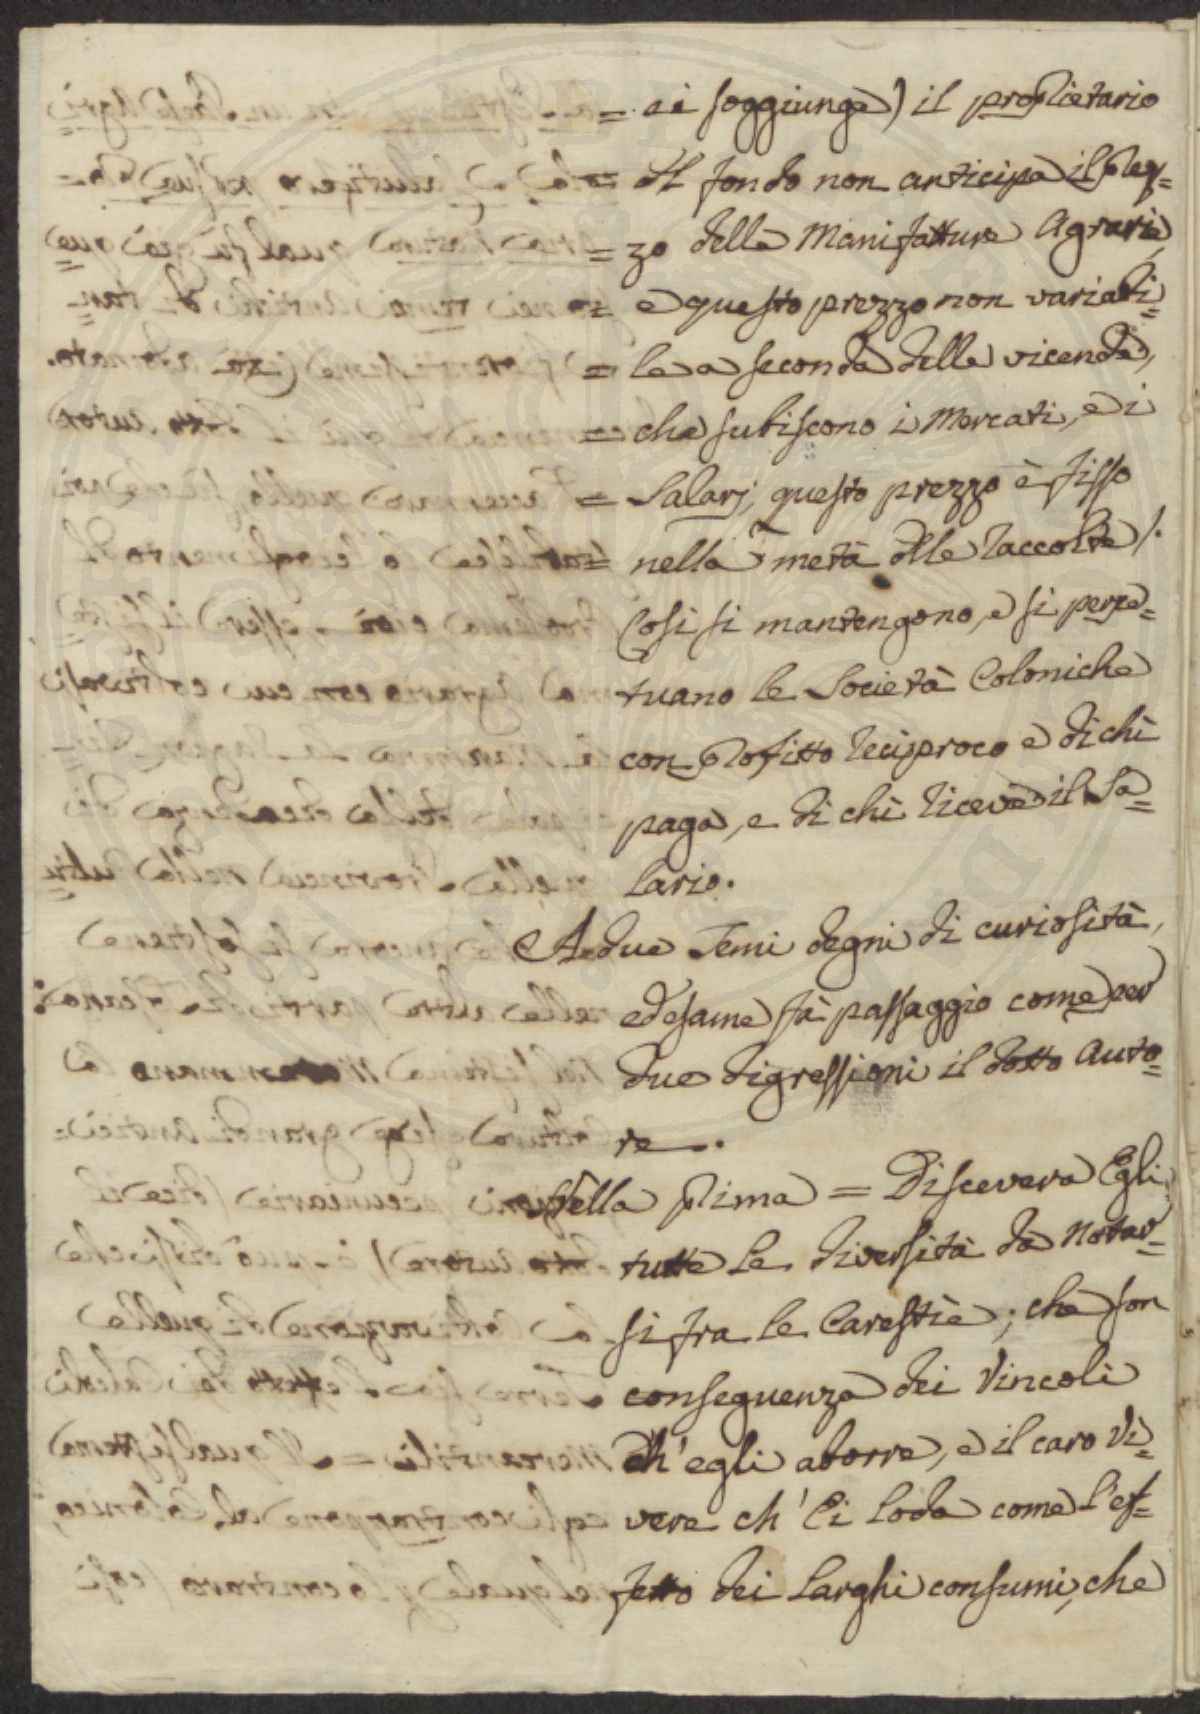 = ei soggiunge) il proprietario
= del fondo non anticipa il prez=
= zo delle Manifatture Agrarie,
= e questo prezzo non variabi=
= le a seconda delle vicende,
= che subiscono i Mercati, e i
= Salarj; questo prezzo è fisso
= nella metà delle raccolte /.
Così si mantengono, e si perpe=
tuano le Società Coloniche
con profitto reciproco e di chì
paga, e di chì riceve il Sa=
lario.
A due Temi degni di curiosità,
ed esame fà passaggio come per
due digressioni il dotto Auto=
re.
Nella prima = Discevera Egli
tutte le diversità dà notar=
si fra le Carestìe; che son
conseguenza dei Vincoli
ch' egli aborre, e il caro Vi=
vere ch' Ei loda come l'ef=
fetto dei larghi consumi, che